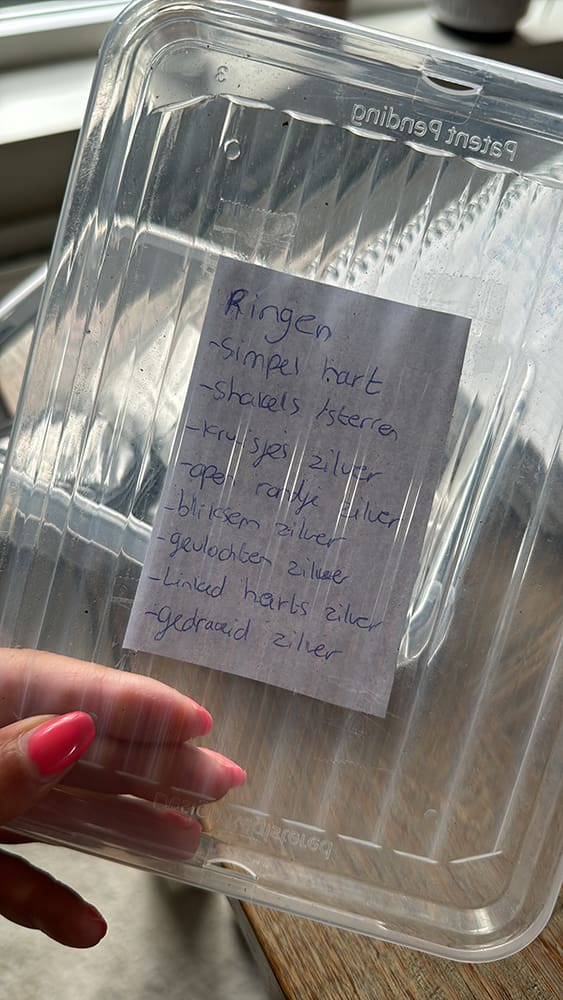 3
Patent Pending
Ringen
-simpel hart
-shakels /sterren
-kruisjes zilver
-open randje zilver
-bliksem zilver
-gevlochten zilver
-Linked harts zilver
-gedraaid zilver